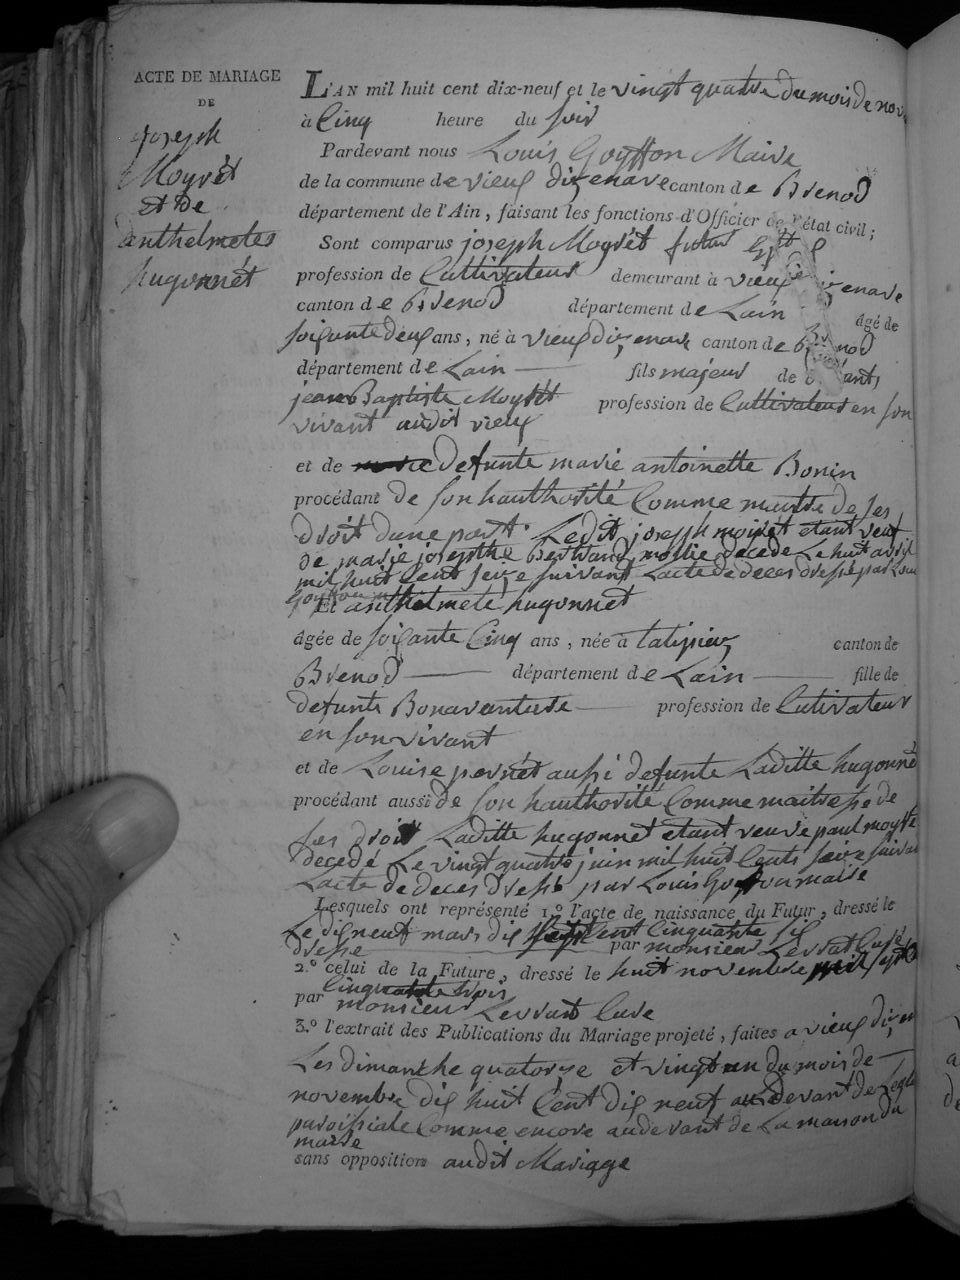 ACTE DE MARIAGE
DE
joseph
Moyrèt
et de
anthelmetes
hugonnét
L'AN mil huit cent dix-neuf et le vingt quatre du mois de nov
à Cinq heure du soir
Pardevant nous Louis Goyffon Maire
de la commune de vieux dizenave canton de Brenod
département de l'Ain, faisant les fonctions d'Officier de l'état civil;
Sont comparus joseph Moyrét futur
profession de Cultivateur demeurant à vieux izenave
canton de Brenod département de Lain âgé de
soixante deux ans, né à vieux dizenave canton de Brenod
département de Lain fils majeur de
jean Baptiste Moyrét profession de Cultivateur en son
vivant audit vieux
et de defunte marie antoinette Bonin
procédant de son hauthorité Comme maitre de ses
droit dune part. Ledit joseph moirét etant veuf
de marie josephte Bertrand mollie decede Le huit avril
mil huit Cent seize suivant Lacte de deces dressé par Louis
goyffon m
Et anthelmete hugonnet
âgée de soixante Cinq ans, née à talissieu canton de
Brenod département de Lain fille de
defunts Bonaventure profession de Cultivateur
en son vivant
et de Louise pernét aussi defunte Laditte hugonnét
procédant aussi de son hauthorité Comme maitresse de
ses droit Laditte hugonnet etant veuve paul moyrét
decedé Le vingt quatre juin mil huit Cents seize suivant
Lacte de deces dressé par Louis Goyffon maire
Lesquels ont représenté 1.º l'acte de naissance du Futur, dressé le
Le dix neuf mars dix sept Cent Cinquante six
dressé par monsieur Levrat Curé
2.º celui de la Future, dressé le huit novembre mil sept C
Cinquante trois
par monsieur Levrat Cure
3.º l'extrait des Publications du Mariage projeté, faites a vieux dizen
Les dimanche quatorze et vingt un du mois de
novembre dix huit Cent dix neuf au devant de Legli
paroissiale Comme encore au devant de La maison du
maire
sans opposition audit Mariage